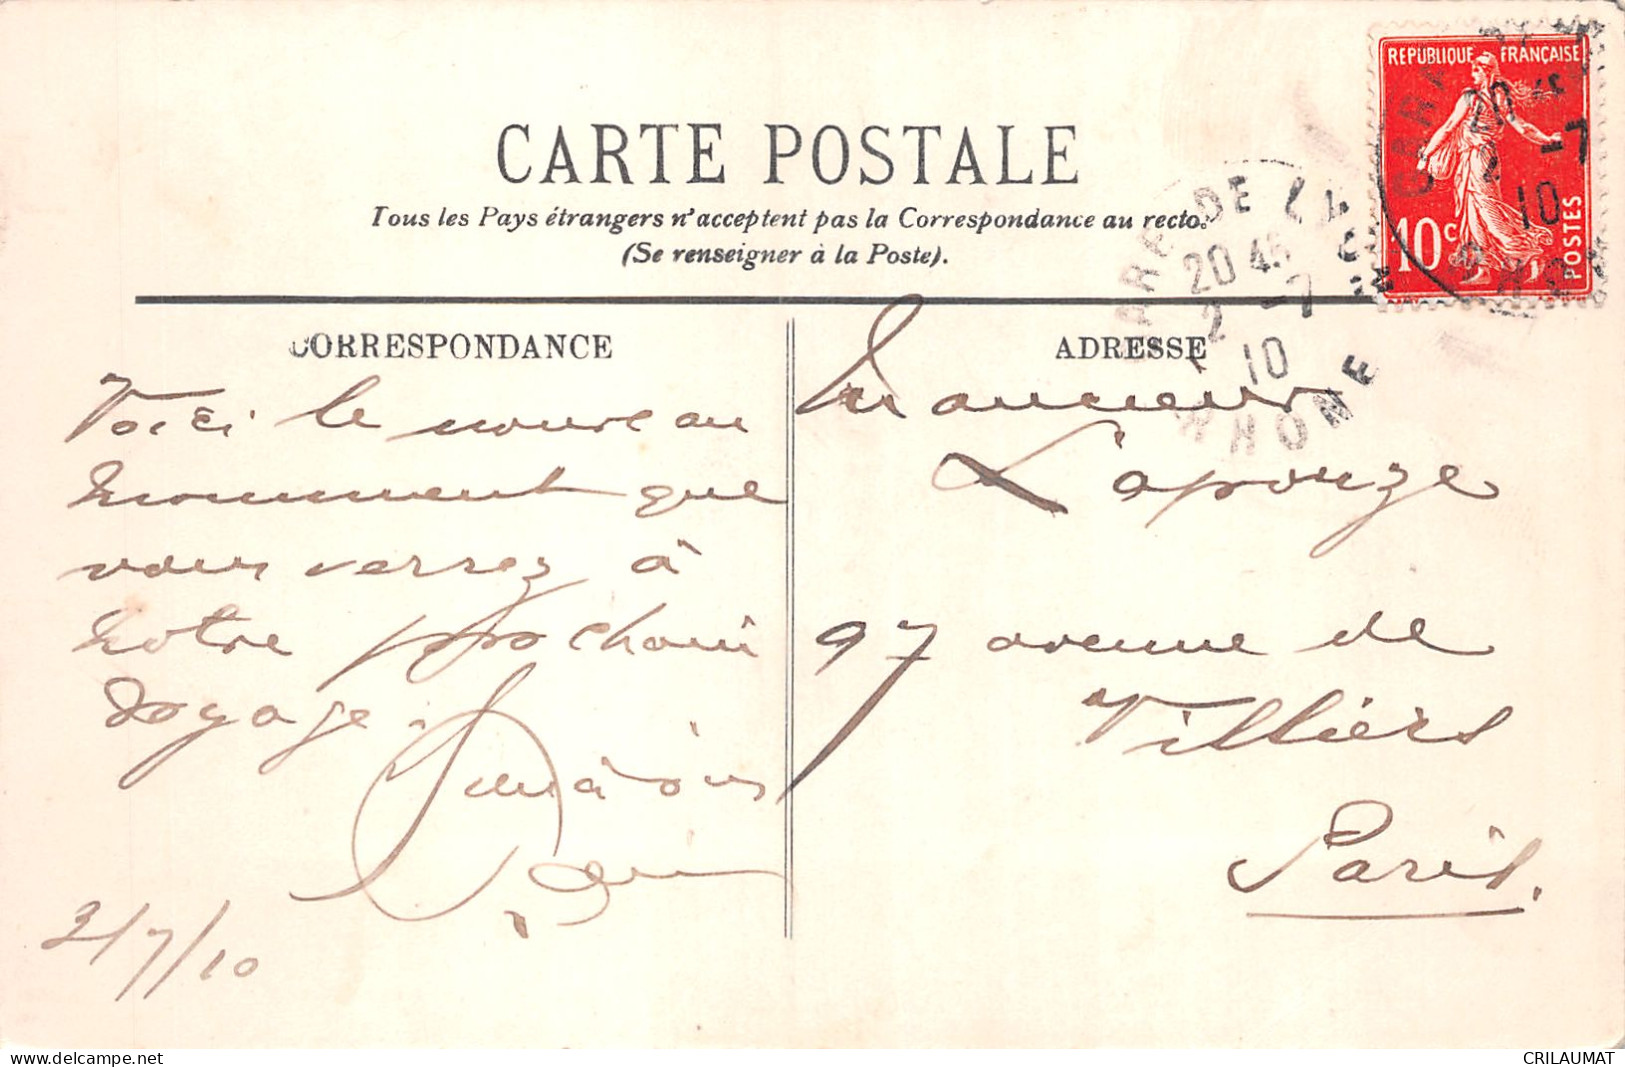 CARTE POSTALE
Tous les Pays étrangers n'acceptent pas la Correspondance au recto.
(Se renseigner à la Poste).
REPUBLIQUE FRANÇAISE
10c
POSTES
GARE DE LA
20 45
2 -7
10
RHONE
20 45
2 -7
10
CORRESPONDANCE
Voici le nouveau
monument que
vous verrez à
votre prochain
voyage.
à vous
2/7/10
ADRESSE
Monsieur
Lapouze
97 avenue de
Villiers
Paris.
www.delcampe.net
CRILAUMAT